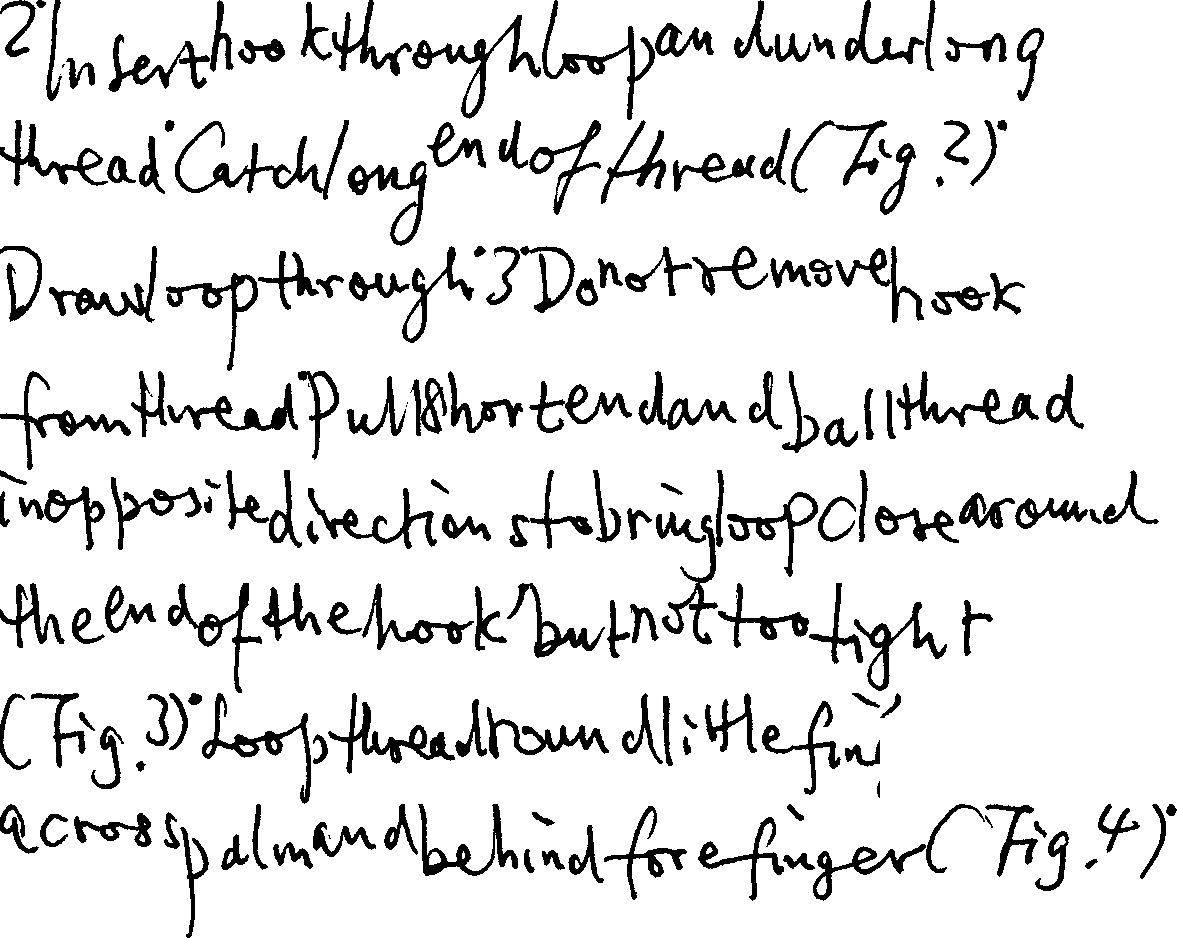 2. Insert hook through loop and under long
thread. Catch long end of thread (Fig. 2).
Draw loop through. 3. Do not remove hook
from thread. Pull short end and ball thread
in opposite directions to bring loop close around
the end of the hook, but not too tight
(Fig. 3). Loop thread round little
across palm and behind forefinger (Fig. 4).